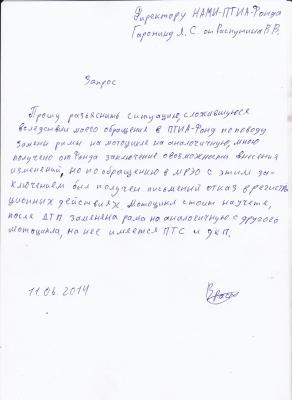 Директору НАМИ-ПТИА-Фонда
Гаронину Л.С. от Распутина В.В.
Запрос
Прошу разъяснить ситуацию, сложившуюся
вследствии моего обращения в ПТИА-Фонд по поводу
замены рамы на мотоцикле на аналогичную, мною
получено от Фонда заключение о возможности внесения
изменений, но по обращению в МРЭО с этим за-
ключением был получен письменый отказ в регистра
ционных действиях. Мотоцикл стоит на учете,
после ДТП заменена рама на аналогичную с другого
мотоцикла, на нее имеется ПТС и дкп.
11.06.2014